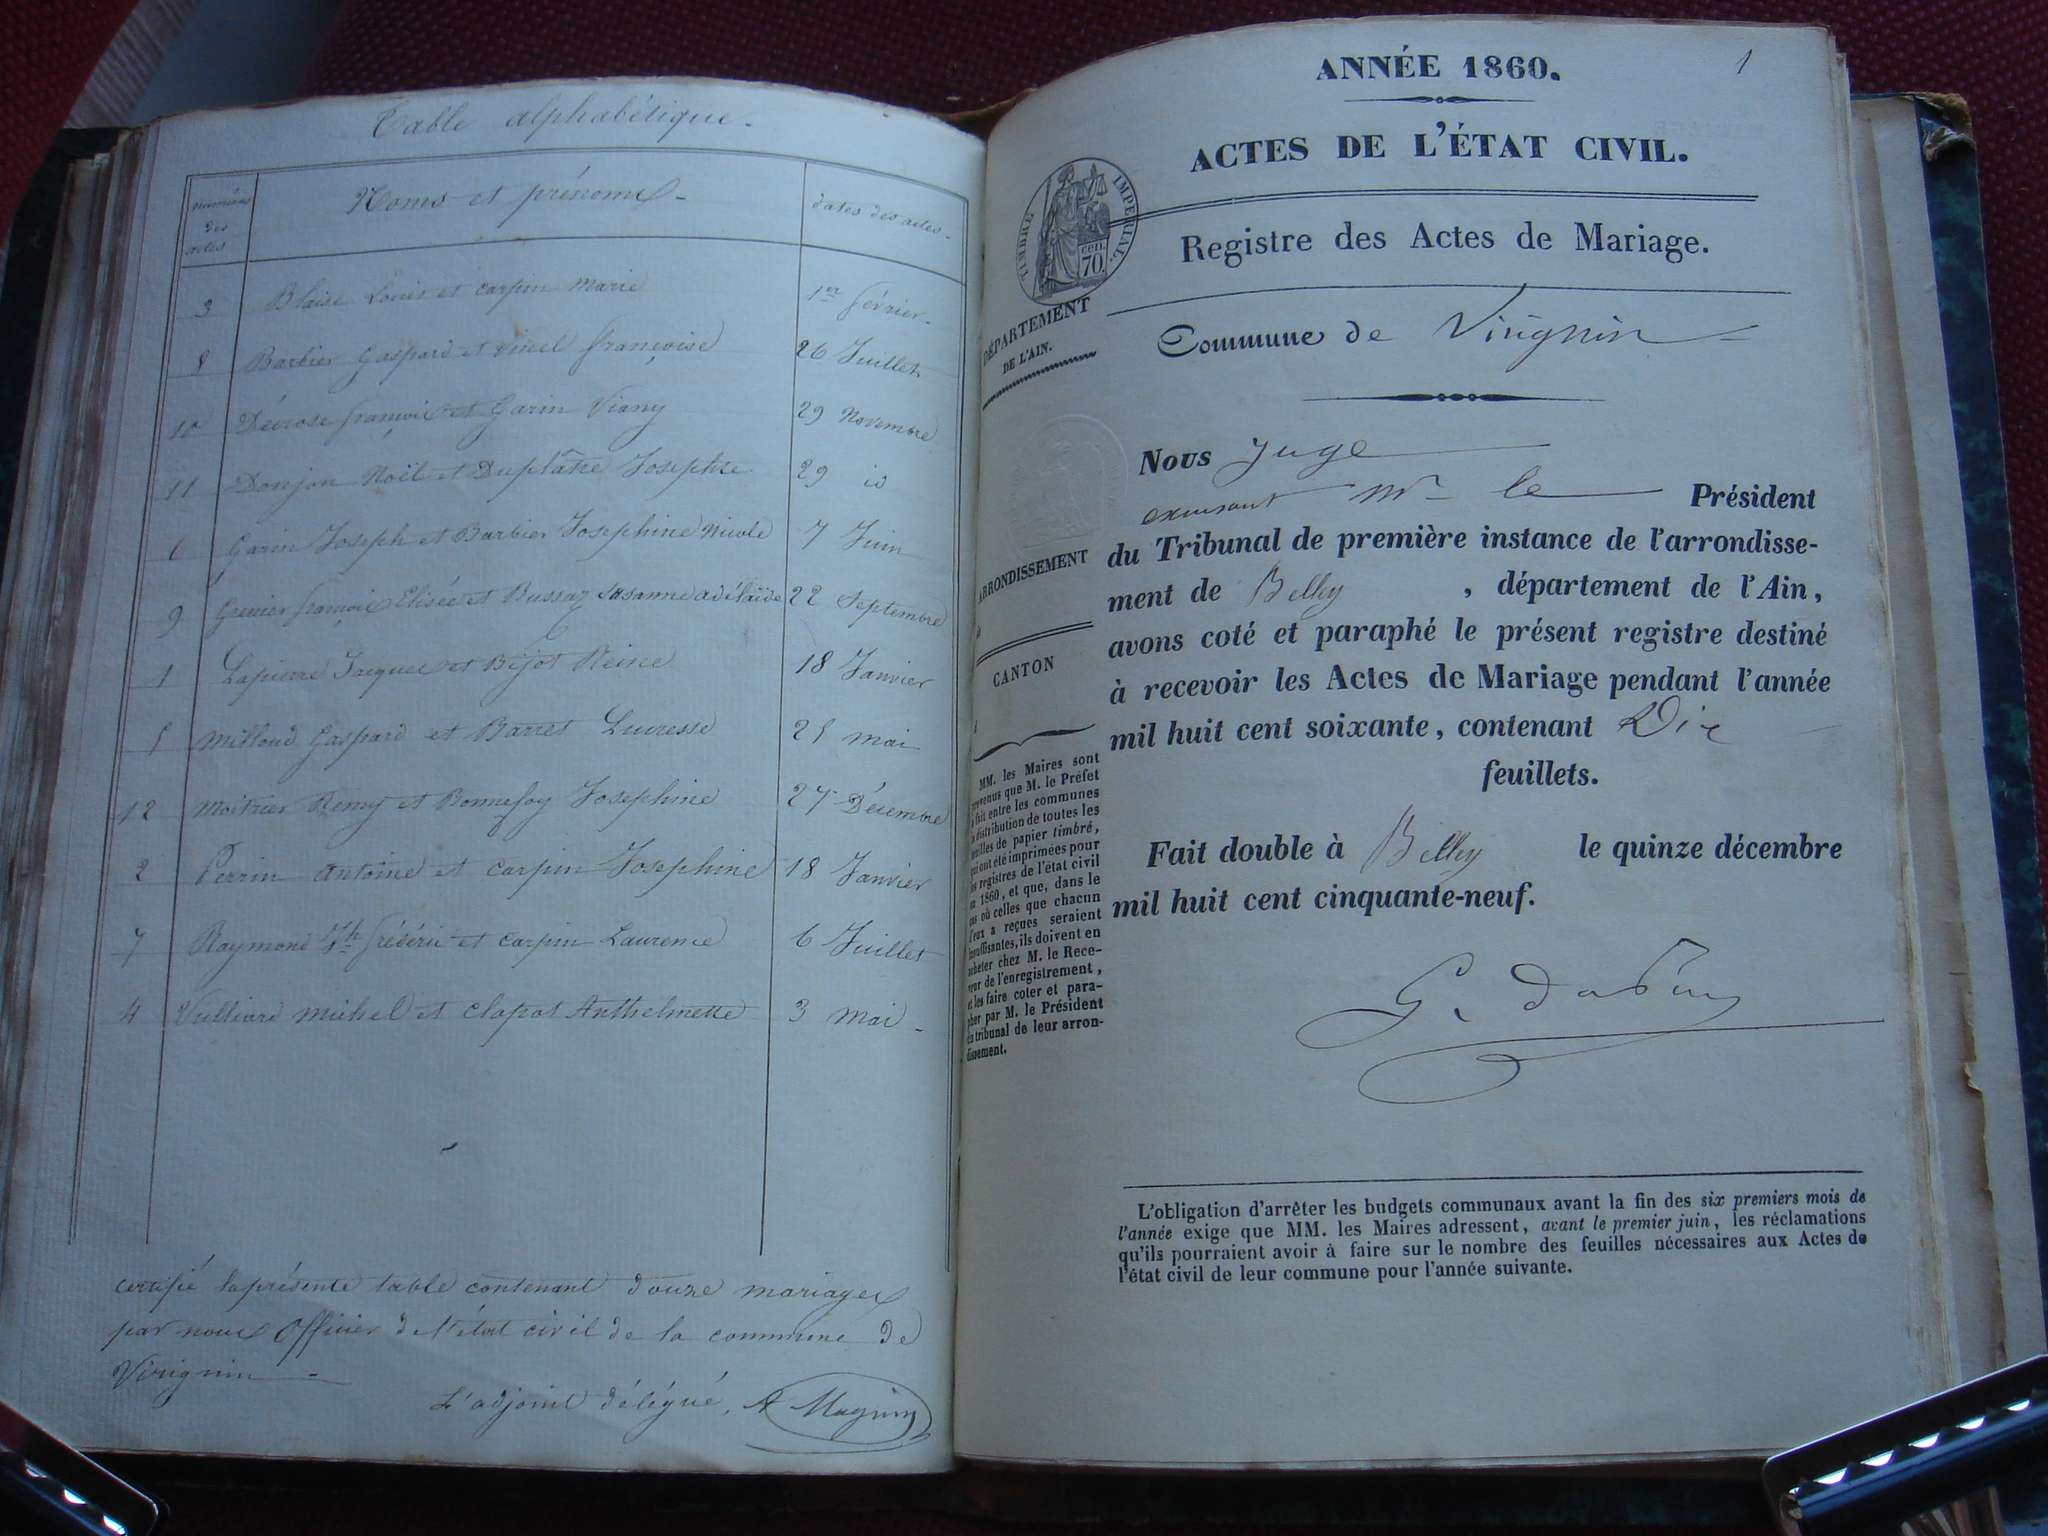 Table alphabétique.
numéros des actes
Noms et prénoms
dates des actes
3 Blaise Louis et Carpin Marie 1er février
8 Barbier Gaspard et Vincel françoise 26 Juillet
10 françois et Garin Viany 29 Novembre
11 Donjon Noël et Duplâtre Josephte 29 id
6 Garin Joseph et Barbier Josephine Nicole 7 Juin
9 Grenier françois Elisée et Bussaz Susanne adélaïde 22 Septembre
1 Lapierre Jacques et Bijot Reine 18 Janvier
5 Milloud Gaspard et Barret Lucresse 25 mai
12 Moitrier Remy et Bonnefoy Josephine 27 Décembre
2 Perrin Antoine et Carpin Josephine 18 Janvier
7 Raymond Jh frédéric et Carpin Laurence 6 Juillet
4 Vulliard Michel et Clapot Anthelmette 3 mai
certifié la présente table contenant douze mariages
par nous Officier de l'état civil de la commune de
Virignin
L'adjoint délégué, A Magnin
1
ANNÉE 1860.
ACTES DE L'ÉTAT CIVIL.
TIMBRE IMPÉRIAL.
70 cen.
Registre des Actes de Mariage.
DÉPARTEMENT
DE L'AIN.
Commune de Virignin
Nous Juge
exerçant Mr le Président
du Tribunal de première instance de l'arrondisse-
ment de Belley, département de l'Ain,
avons coté et paraphé le présent registre destiné
à recevoir les Actes de Mariage pendant l'année
mil huit cent soixante, contenant Dix
feuillets.
Fait double à Belley le quinze décembre
mil huit cent cinquante-neuf.
ARRONDISSEMENT
CANTON
MM. les Maires sont
prévenus que M. le Préfet
a fait entre les communes
la distribution de toutes les
feuilles de papier timbré,
qui ont été imprimées pour
les registres de l'état civil
en 1860, et que, dans le
cas où celles que chacun
d'eux a reçues seraient
insuffisantes, ils doivent en
acheter chez M. le Rece-
veur de l'enregistrement,
et les faire coter et para-
pher par M. le Président
du tribunal de leur arron-
dissement.
L'obligation d'arrêter les budgets communaux avant la fin des six premiers mois de
l'année exige que MM. les Maires adressent, avant le premier juin, les réclamations
qu'ils pourraient avoir à faire sur le nombre des feuilles nécessaires aux Actes de
l'état civil de leur commune pour l'année suivante.